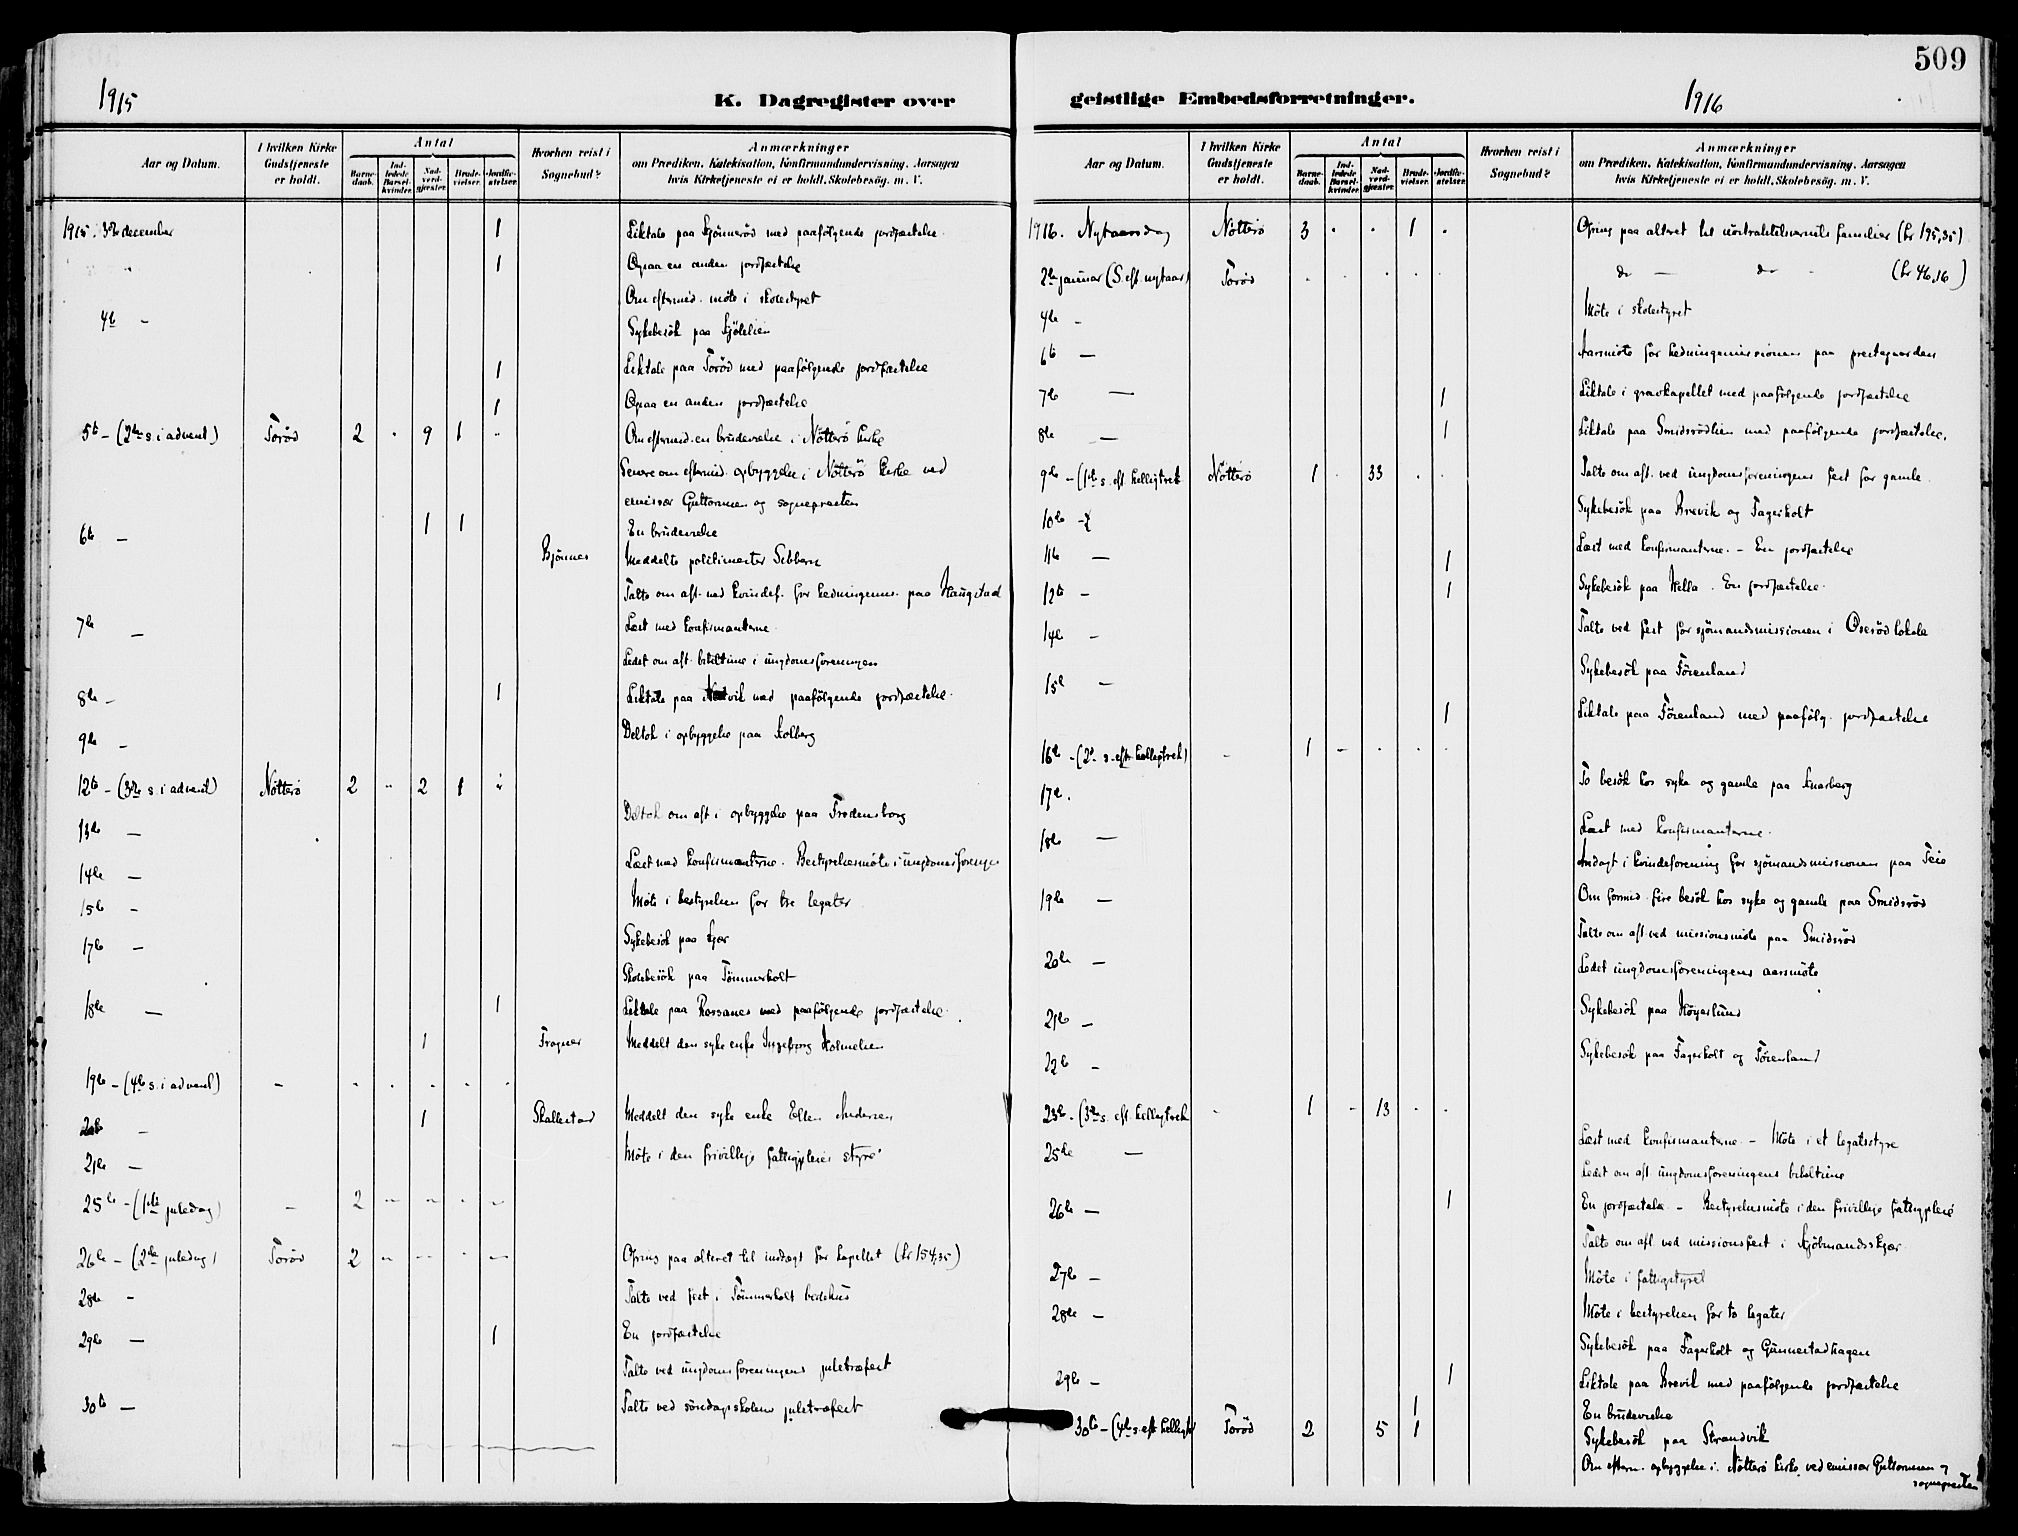 509
1915
K. Dagregister over
Aar og Datum.
I hvilken Kirke Gudstjeneste er holdt.
Antal
Barnedaab.
Indledede Barselkvinder.
Nadverdgjæster.
Brudevielser.
Jordfæstelser.
Hvorhen reist i Sognebud?
Anmærkninger
om Prædiken, Katekisation, Konfirmandundervisning, Aarsagen
hvis Kirketjeneste ei er holdt, Skolebesög. m. V.
1915. 3die december 1 Liktale paa Skjönnerød med paafölgende jordfæstelse.
" 1 Ogsaa en anden jordfæstelse
Om eftermid. möte i skolestyret
4de - Sykebesök paa
1 Liktale paa Torød med paafölgende jordfæstelse
1 Ogsaa en anden jordfæstelse
5te - (2den s. i advent) Torød 2 . 9 1 .. Om eftermid. en brudevielse i Nötterö kirke
Senere om eftermid. opbyggelse i Nötterö kirke ved
emissær Guttormsen og sognepresten
6te - 1 1 En brudevielse
Bjönnes Meddelte politimester Sibbern
Talte om aft. ved kvindef. for hedningemis. paa Haugstad
7de - Læst med konfirmanterne
Ledet om aft. bibeltime i ungdomsforeningen
8de - 1 Liktale paa med paafölgende jordfæstelse.
9de - Deltok i opbyggelse paa Kolberg
12te - (3die s. i advent) Nötterö 2 .. 2 1 ..
13de - Deltok om aft. i opbyggelse paa Fredensborg
14de - Læst med konfirmanterne. Bestyrelsesmöte i ungdomsforening
15de - Möte i bestyrelsen for tre legater
17de - Sykebesök paa Kjær
Skolebesök paa Tömmerholt
18de - 1 Liktale paa Rossanes med paafölgende jordfæstelse.
1 Frogner Meddelt den syke enke Ingeborg Holmelien
19de - (4de s. i advent) - . . . . .
20de - 1 Skallestad Meddelt den syke enke Ellen Andersen
21de - Möte i den frivillige fattigpleies styre
25de - (1ste juledag) - 2 - - - -
26de - (2den juledag) Torød 2 - - - - Ofring paa alteret til indtægt for kapellet (kr 154,35)
28de - Talte ved fest i Tömmerholt bedehus
29de - 1 En jordfæstelse
Talte ved ungdomsforeningens juletræfest
30te - Talte ved söndagsskolens juletræfest
geistlige Embedsforretninger.
1916
Aar og Datum.
I hvilken Kirke Gudstjeneste er holdt.
Antal
Barnedaab.
Indledede Barselkvinder.
Nadverdgjæster.
Brudevielser.
Jordfæstelser.
Hvorhen reist i Sognebud?
Anmærkninger
om Prædiken, Katekisation, Konfirmandundervisning, Aarsagen
hvis Kirketjeneste ei er holdt, Skolebesög. m. V.
1916. Nytaarsdag Nötterö 3 . . 1 . Ofring paa alteret til nöitralitetsvernets familier (kr 195,35)
2den januar (S. eft. nytaar) Torød . . . . . do — do - (kr 46,16)
4de - Möte i skolestyret
6te - Aarsmöte for hedningemissionen paa prestegaarden
7de - 1 Liktale i gravkapellet med paafölgende jordfæstelse
8de - 1 Liktale paa Smidsrödlien med paafölgende jordfæstelse.
9de - (1ste s. eft. helligtrek Nötterö 1 . 33 . . Talte om aft. ved ungdomsforeningens fest for gamle
10de - Sykebesök paa Brevik og Fagerholt
11te - 1 Læst med konfirmanterne. - En jordfæstelse
12te - 1 Sykebesök paa Hella. En jordfæstelse.
14de - Talte ved fest for sjömandsmissionen i Oserød lokale
15de - Sykebesök paa Förenland
1 Liktale paa Förenland med paafölg. jordfæstelse
16de - (2den s. eft. helligtrek) - 1 - . . .
17de. To besök hos syke og gamle paa Knarberg
18de - Læst med konfirmanterne.
Andagt i kvindeforening for sjömandsmissionen paa Teie
19de - Om formid. fire besök hos syke og gamle paa Smidsröd
Talte om aft. ved missionsmöte paa Smidsröd
20de - Ledet ungdomsforeningens aarsmöte
21de - Sykebesök paa Höyerlund
22de - Sykebesök paa Fagerholt og Förenland
23de - (3die s. eft. helligtrek - 1 - 13 . .
25de - Læst med konfirmanterne - Möte i et legatstyre
Ledet om aft. ungdomsforeningens bibeltime
26de - 1 En jordfæstelse - Bestyrelsesmöte i den frivillige fattigpleie
Talte om aft. ved missionsfest i Kjöbmandsskjær.
27de - Möte i fattigstyret
28de - Möte i bestyrelsen for to legater
Sykebesök paa Fagerholt og Gunnestadhagen
29de - 1 Liktale paa Brevik med paafölgende jordfæstelse
1 En brudevielse
30te - (4de s. eft. helligtr Torød 2 5 1 Sykebesök paa Strandvik
Om eftern. opbyggelse i Nötterö kirke ved emissær Guttormsen og
sognepresten